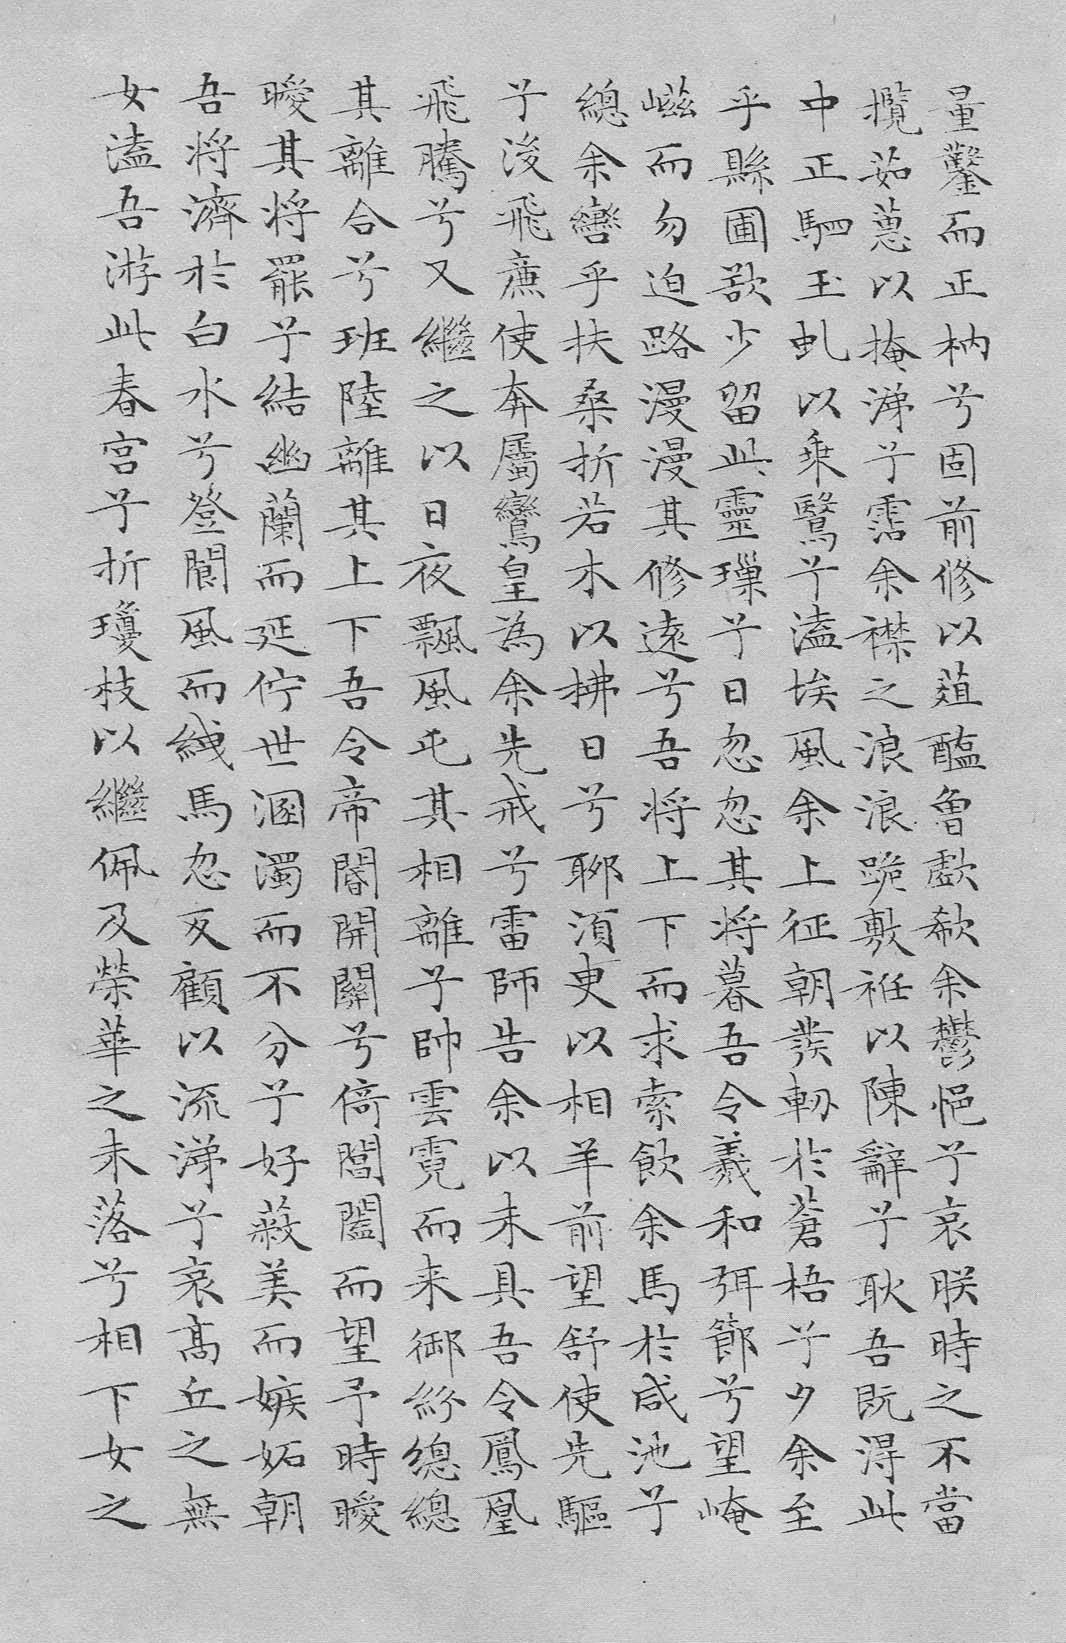 量鑿而正枘兮固前修以葅醢曾歔欷余鬱悒兮哀朕時之不當
攬茹蕙以掩涕兮霑余襟之浪浪跪敷衽以陳辭兮耿吾既得此
中正駟玉虬以乗鷖兮溘埃風余上征朝發軔於蒼梧兮夕余至
乎縣圃欲少留此靈璅兮日忽忽其將暮吾令羲和弭節兮望崦
嵫而勿迫路漫漫其修遠兮吾將上下而求索飲余馬於咸池兮
總余轡乎扶桑折若木以拂日兮聊須臾以相羊前望舒使先驅
兮後飛廉使奔屬鸞皇為余先戒兮雷師告余以未具吾令鳳凰
飛騰兮又繼之以日夜飄風屯其相離兮帥雲霓而来御紛總總
其離合兮班陸離其上下吾令帝閽開關兮倚閶闔而望予時曖
曖其將罷兮結幽蘭而延佇世溷濁而不分兮好蔽美而嫉妬朝
吾將濟於白水兮登閬風而緤馬忽反顧以流涕兮哀高丘之無
女溘吾游此春宮兮折瓊枝以繼佩及榮華之未落兮相下女之